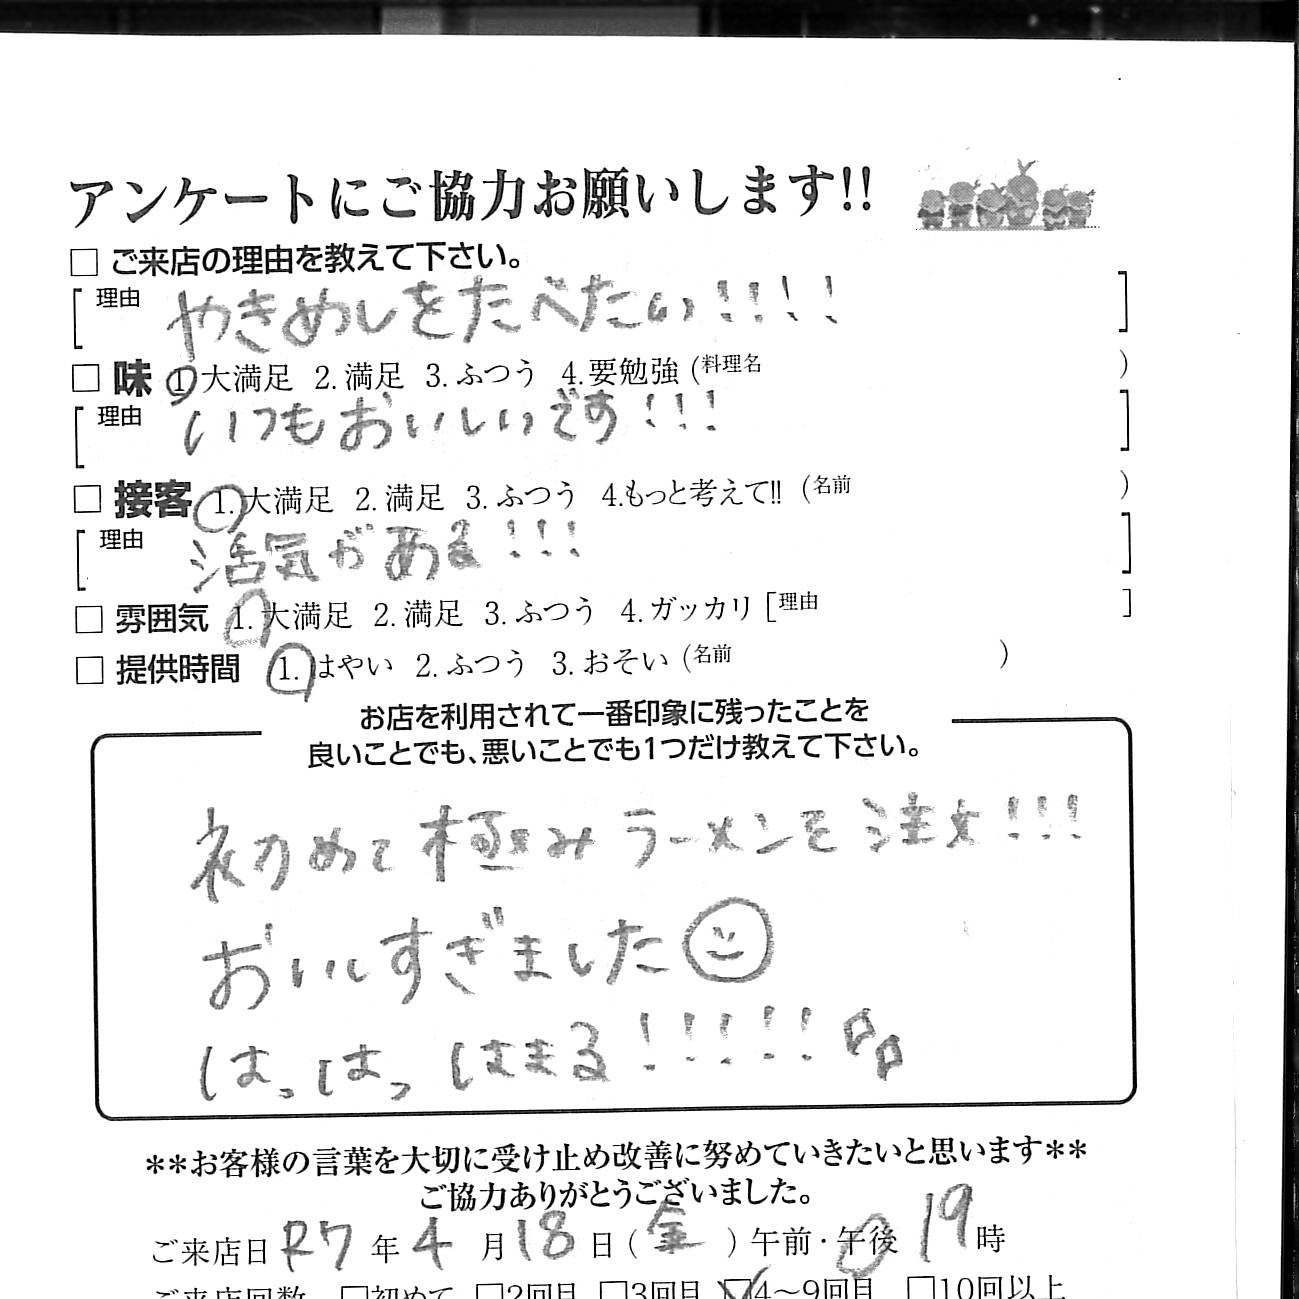 アンケートにご協力お願いします!!
□ ご来店の理由を教えて下さい。
[理由 やきめしをたべたい!!!! ]
□ 味 1.大満足 2.満足 3.ふつう 4.要勉強 (料理名 )
[理由 いつもおいしいです!!! ]
□ 接客 1.大満足 2.満足 3.ふつう 4.もっと考えて!! (名前 )
[理由 活気がある!!! ]
□ 雰囲気 1.大満足 2.満足 3.ふつう 4.ガッカリ [理由 ]
□ 提供時間 1.はやい 2.ふつう 3.おそい (名前 )
お店を利用されて一番印象に残ったことを
良いことでも、悪いことでも1つだけ教えて下さい。
初めて極みラーメンを注文!!!
おいしすぎました
はっはっ はまる!!!!!
**お客様の言葉を大切に受け止め改善に努めていきたいと思います**
ご協力ありがとうございました。
ご来店日 R7 年 4 月 18 日(金)午前・午後 19 時
ご来店回数 □初めて □2回目 □3回目 ☑4〜9回目 □10回以上